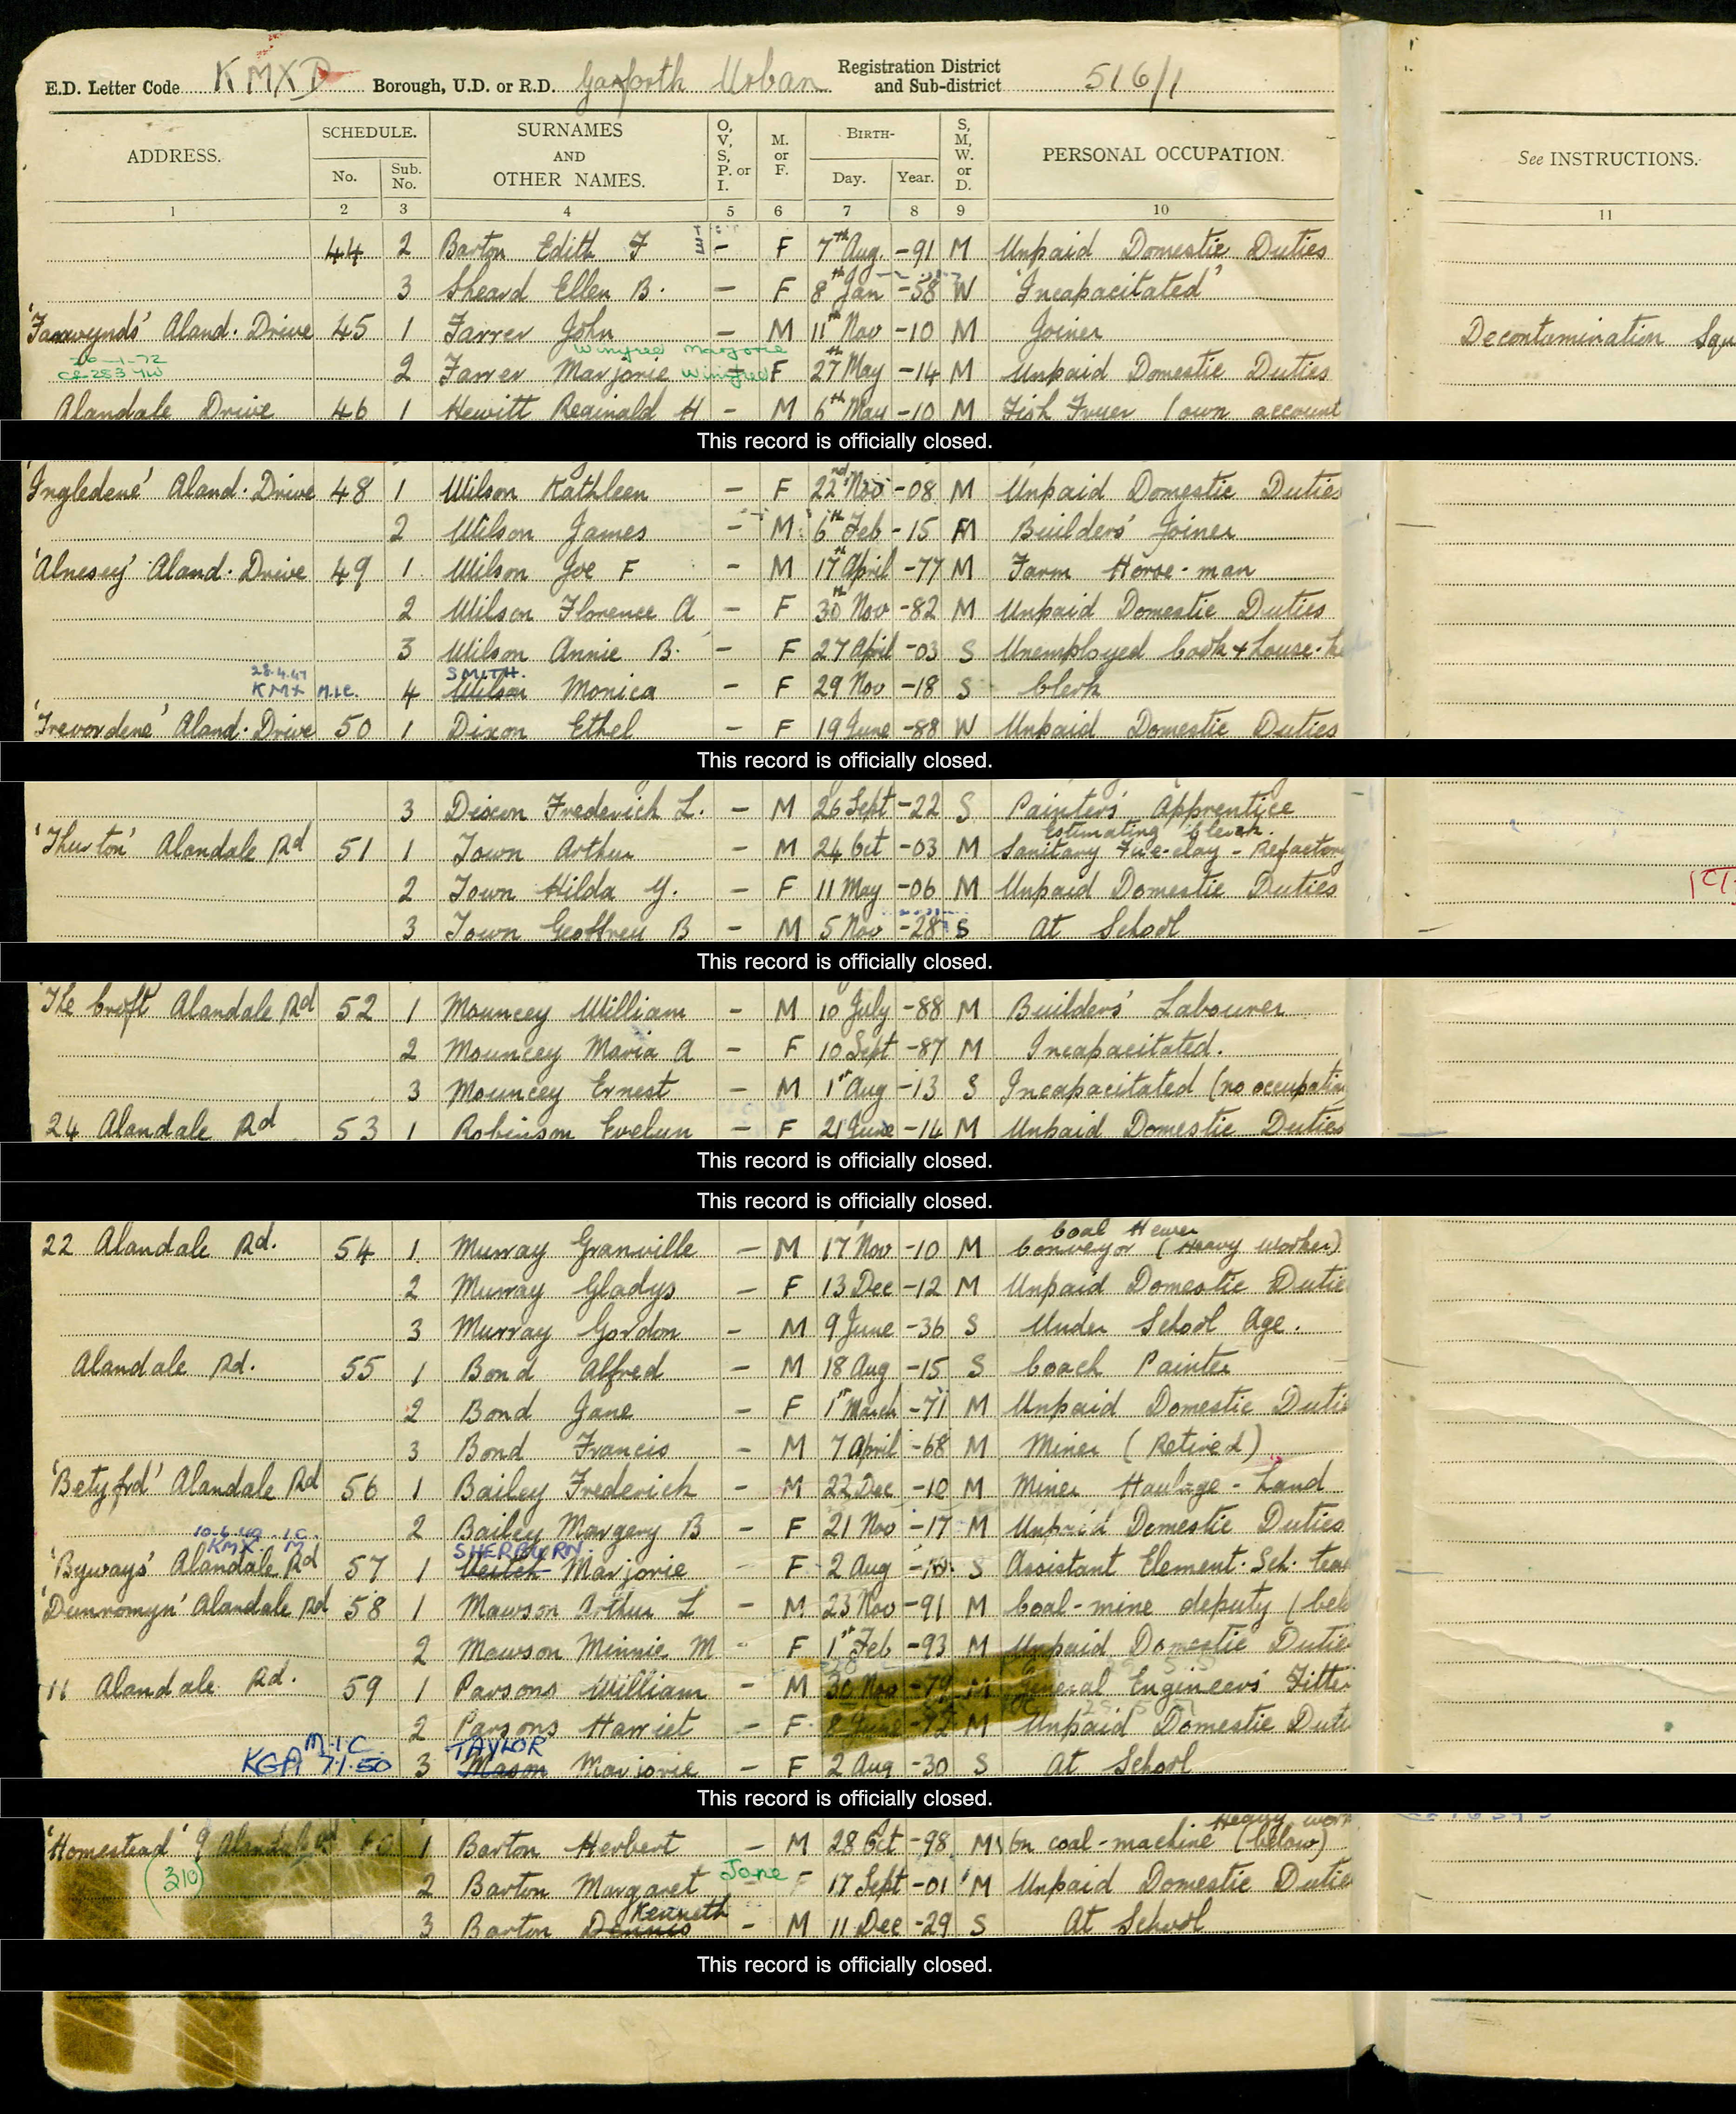 E.D. Letter Code KMXD Borough, U.D. or R.D. Garforth Urban Registration District and Sub-district 516/1
ADDRESS. SCHEDULE. No. Sub. No. SURNAMES AND OTHER NAMES. O, V, S, P. or I. M. or F. BIRTH- Day. Year. S, M, W. or D. PERSONAL OCCUPATION. See INSTRUCTIONS.
1 2 3 4 5 6 7 8 9 10 11
44 2 Barton Edith F - F 7th Aug. -91 M Unpaid Domestic Duties
3 Sheard Ellen B. - F 8th Jan -58 W 'Incapacitated'
Aland. Drive 45 1 Farrer John - M 11th Nov -10 M Joiner Decontamination Squ
Winifred Marjorie
2 Farrer Marjorie Winifred F 27th May -14 M Unpaid Domestic Duties
Alandale Drive 46 1 Hewitt Reginald H - M 6th May -10 M Fish Fryer (own account
This record is officially closed.
'Ingledene' Aland. Drive 48 1 Wilson Kathleen - F 22nd Nov -08 M Unpaid Domestic Duties
2 Wilson James - M 6th Feb -15 M Builders' Joiner
'Alnesey' Aland. Drive 49 1 Wilson Joe F - M 17th April -77 M Farm Horse-man
2 Wilson Florence A - F 30th Nov -82 M Unpaid Domestic Duties
3 Wilson Annie B. - F 27 April -03 S Unemployed Cook & House-k
SMITH.
KMX 4 Wilson Monica - F 29 Nov -18 S Clerk
'Trevordene' Aland. Drive 50 1 Dixon Ethel - F 19 June -88 W Unpaid Domestic Duties
This record is officially closed.
3 Dixon Frederick L. - M 26 Sept -22 S Painters' Apprentice
Estimating Clerk.
'Thurston' Alandale Rd 51 1 Town Arthur - M 24 Oct -03 M Sanitary Fire-clay - Refactory
2 Town Hilda Y. - F 11 May -06 M Unpaid Domestic Duties
3 Town Geoffrey B - M 5 Nov -28 S At School
This record is officially closed.
'The Croft' Alandale Rd 52 1 Mouncey William - M 10 July -88 M Builders' Labourer
2 Mouncey Maria A - F 10 Sept -87 M Incapacitated.
3 Mouncey Ernest - M 1st Aug -13 S Incapacitated (no occupation
24 Alandale Rd 53 1 Robinson Evelyn - F 21 June -14 M Unpaid Domestic Duties
This record is officially closed.
This record is officially closed.
Coal Hewer
22 Alandale Rd. 54 1 Murray Granville - M 17 Nov -10 M Conveyor (Heavy Worker)
2 Murray Gladys - F 13 Dec -12 M Unpaid Domestic Dutie
3 Murray Gordon - M 9 June -36 S Under School Age.
Alandale Rd. 55 1 Bond Alfred - M 18 Aug -15 S Coach Painter
2 Bond Jane - F 1st March -71 M Unpaid Domestic Dutie
3 Bond Francis - M 7 April -68 M Miner (Retired)
'Betyfrd' Alandale Rd 56 1 Bailey Frederick - M 22 Dec -10 M Miner Haulage - Land
2 Bailey Margery B - F 21 Nov -17 M Unpaid Domestic Duties
KMX. SHERBURN.
'Byways' Alandale Rd 57 1 Marjorie F 2 Aug S Assistant Element. Sch. teac
'Dunromyn' Alandale Rd 58 1 Mawson Arthur L - M 23 Nov -91 M Coal-mine deputy (bel
2 Mawson Minnie M - F 1st Feb -93 M Unpaid Domestic Dutie
11 Alandale Rd. 59 1 Parsons William - M 30 Nov -79 M General Engineers' Fitter
2 Parsons Harriet - F 8 June -72 M Unpaid Domestic Duti
M.I.C. TAYLOR
KGA 7.1.50 3 Mason Marjorie - F 2 Aug -30 S At School
This record is officially closed.
Heavy work
'Homestead' 9 Alandale Rd 60 1 Barton Herbert - M 28 Oct -98 M On coal-machine (below)
(310) 2 Barton Margaret Jane F 17 Sept -01 M Unpaid Domestic Dutie
Kenneth
3 Barton Dennis - M 11 Dec -29 S At School
This record is officially closed.